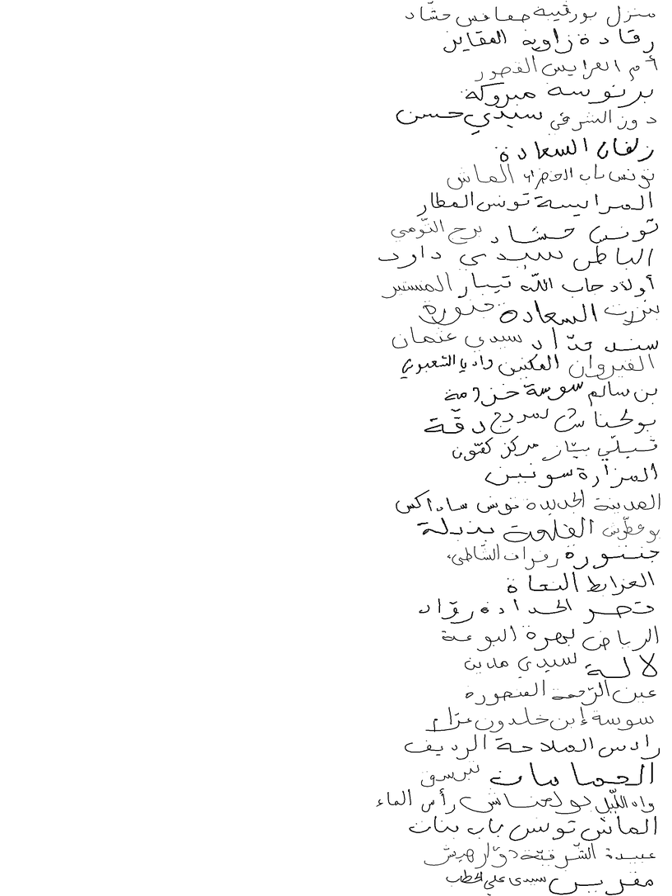 منزل بورقيبة صفاقس حشاد
رقادة زاوية المقايز
أم العرايس القصور
برنوسة مبروكة
دوز الشرقي سيدي حسن
زلفان السعادة
تونس باب الخضراء الماش
المرايسة تونس المطار
تونس حشاد برج التومي
الباطن سيدي داود
أولاد جاب اللّه تيبار المنستير
بنزرت السعادة
سند حدّاد سيدي عثمان
القيروان المكنين وادي الشعبوني
بن سالم سوسة خزامة
بولحناش لمردج دقّة
قبلّي بيّاز مركز كمّون
المزارة سونين
المدينة الجديدة تونس ساداكس
بوعطّوش القلعة بنبلة
جنتورة رفراف الشاطئ
المرابط النفاة
قصر الحدادة روّاد
الرياض بهرة
لالة سيدي مدين
عين الرّحمة المنصورة
سوسة إبن خلدون عزّام
رادس الملاحة الرديف
الحمامات تبرسق
واد اللّيل بولحناش رأس الماء
الماش تونس باب بنات
عبيدة الشّرقيّة دوّار هيش
مقرين سيدي علي الحطاب